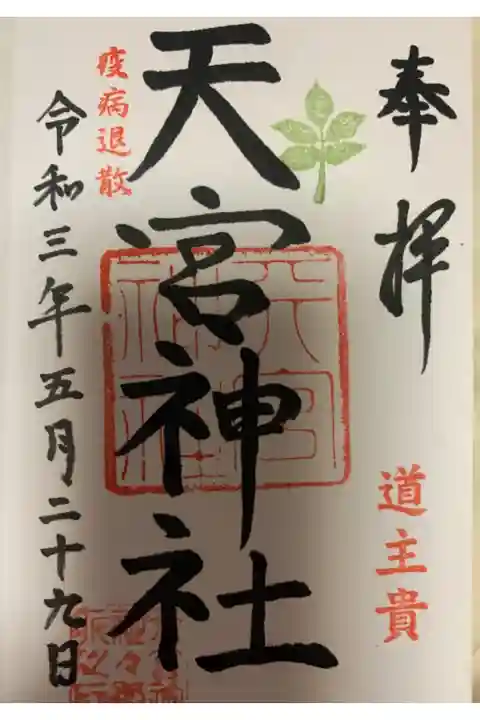 奉拝
道主貴
天宮神社
天宮神社
疫病退散
令和三年五月二十九日